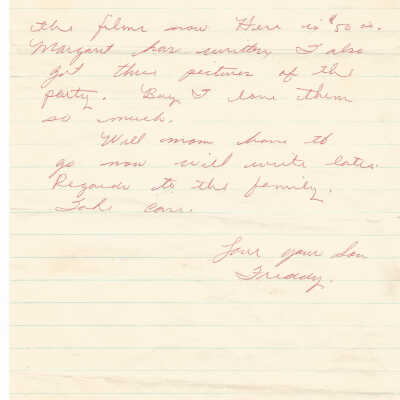 the films now Here is $50 00.
Margaret has written I also
got three pictures of the
party. Boy I love them
so much.
Will mom have to
go now will write later
Regards to the family.
Take care.
Your Son
Freddy.